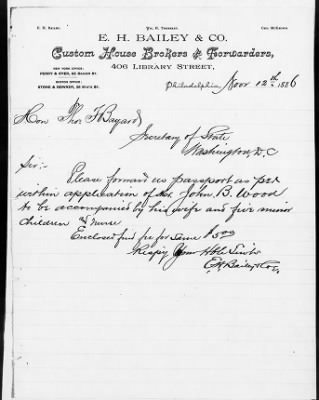 E. H. BAILEY.
E. H. BAILEY & CO.
Custom House Brokers & Forwarders,
406 LIBRARY STREET,
NEW YORK OFFICE:
BOSTON OFFICE:
Philadelphia, Nov 12th 1886
Hon Tho. F Bayard
Secretary of State
Washington, D.C
Sir:-
Please forward us passport as per
within application of John B. Wood
to be accompanied by his wife and five minor
children & nurse
Enclosed find fee for same $5.00
Respy Your
E H Bailey & Co.